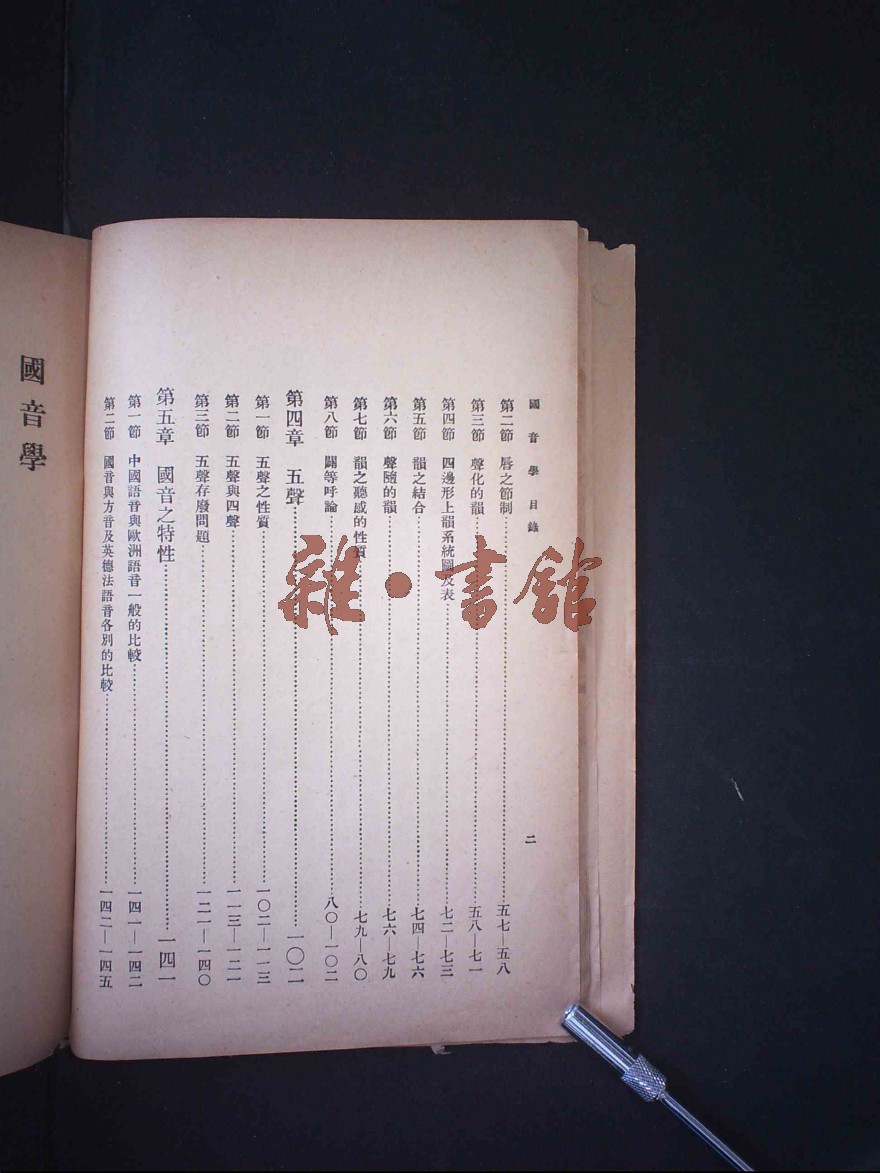 國音學目錄
二
第二節 唇之節制 五七—五八
第三節 聲化的韻 五八—七一
第四節 四邊形上韻系統圖及表 七二—七三
第五節 韻之結合 七四—七六
第六節 聲隨的韻 七六—七九
第七節 韻之聽感的性質 七九—八〇
第八節 闢等呼論 八〇—一〇二
第四章 五聲 一〇二
第一節 五聲之性質 一〇二—一一三
第二節 五聲與四聲 一一三—一二一
第三節 五聲存廢問題 一二一—一四〇
第五章 國音之特性 一四一
第一節 中國語音與歐洲語音一般的比較 一四一—一四二
第二節 國音與方音及英德法語音各別的比較 一四二—一四五
國音學
雜·書館